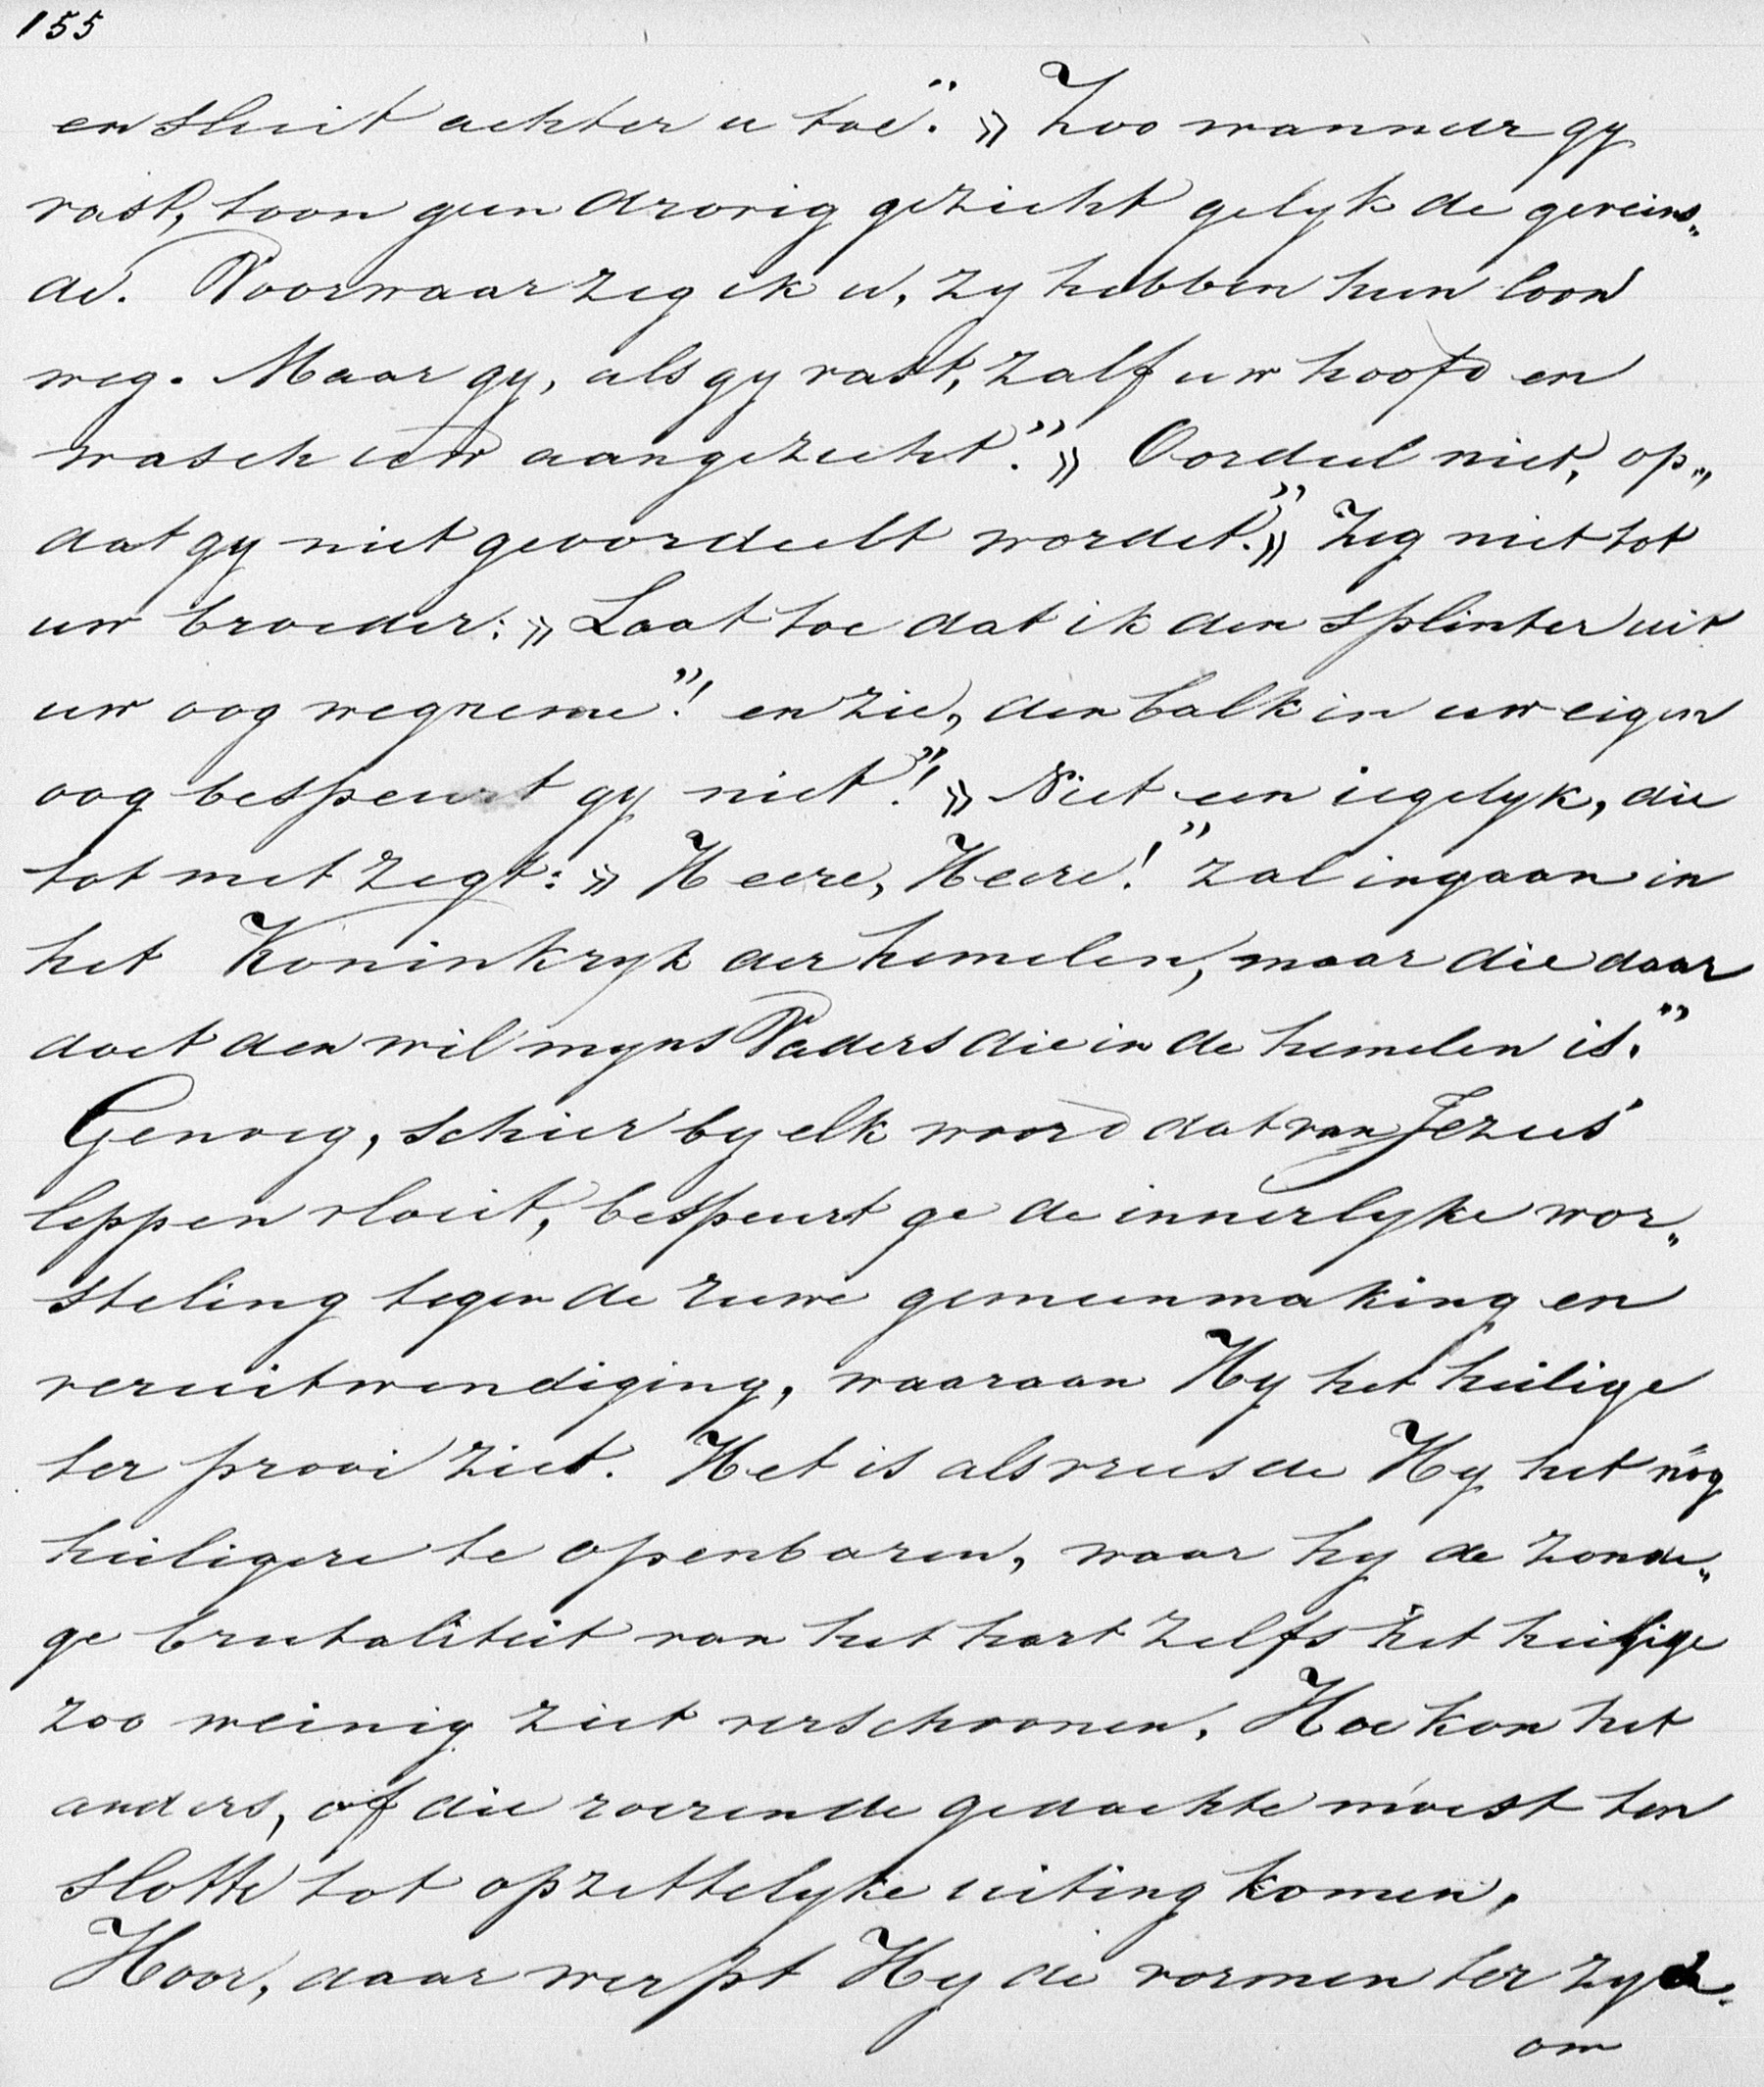 155
en sluit achter u toe". » Zoo wanneer gy
vast, toon geen droevig gezicht gelyk de geveins„
de. Voorwaar zeg ik u, zy hebben hun loon
weg. Maar gy, als gy vast, zalf uw hoofd en
wasch uw aangezicht." » Oordeel niet, op„
dat gy niet geoordeelt wordet." » Zeg niet tot
uw broeder: » Laat toe dat ik den splinter uit
uw oog wegneme"! en zie, den balk in uw eigen
oog bespeurt gy niet"! » Niet een iegelyk, die
tot met zegt: » Heere, Heere!" zal ingaan in
het Koninkryk der hemelen, maar die daar
doet den wil myns Vaders die in de hemelen is."
Genoeg, schier by elk woord dat van Jezus'
lippen vloeit, bespeurt ge de innerlyke wor„
steling tegen de ruwe gemeenmaking en
veruitwendiging, waaraan Hy het heilige
ter prooi ziet. Het is als vreesde Hy het nóg
heiligere te openbaren, waar hy de zondi„
ge brutaliteit van het hart zelfs het heilige
zoo weinig ziet verschoonen. Hoe kon het
anders, of die roerende gedachte moest ten
slotte tot opzettelyke uiting komen.
Hoor, daar werpt Hy die vormen ter zyde.
om